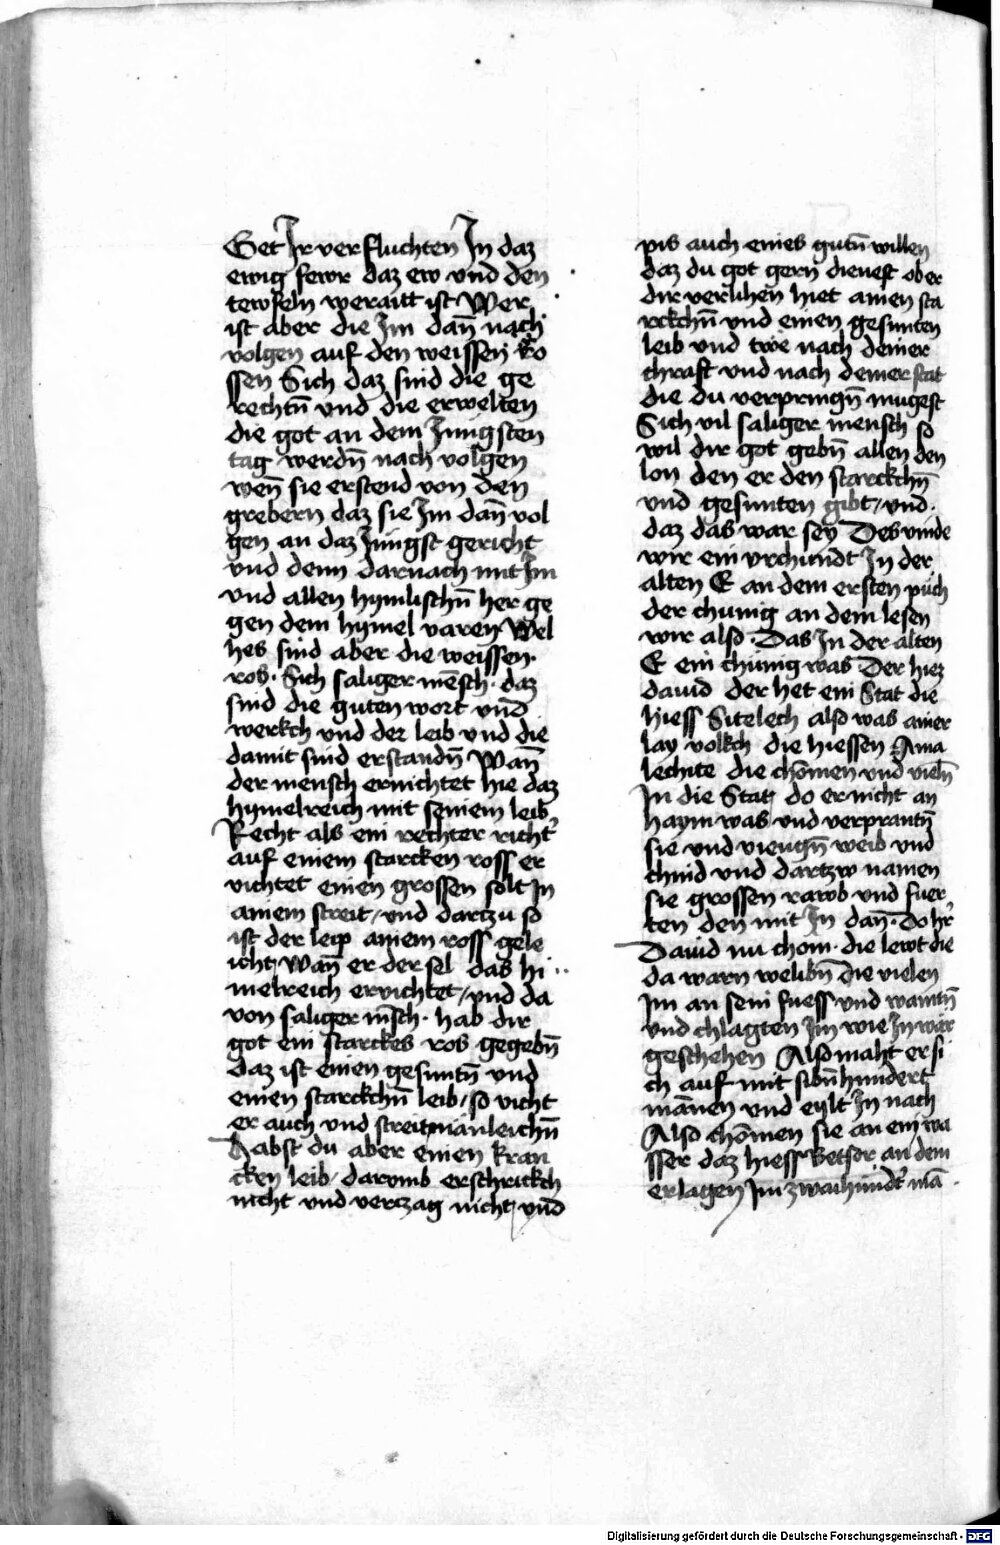 Get Ir verfluchten In daz
ewig fewr daz ew vnd den
tewfeln weraitt ist Wer
ist aber die Im dañ nach
volgen auf den weissen Ro
ssen Sich daz sind die ge
rechtñ vnd die erwelten
die got an dem Jungsten
tag werdñ nach volgen
weñ sie erstend von den
grebern daz sie Im dañ vol
gen an daz Jungst gericht
vnd denn darnach mit Im
vnd allen hymlischñ her ge
gen dem hymel varen Wel
hes sind aber die weissen
ros. Sich saliger mēsch daz
sind die guten wort vnd
werkch vnd der leib vnd die
damit sind erstandñ Wañ
der mensch eruichtet hie daz
hymelreich mit seinem leib
Recht als ein rechter richt'
auf einem starcken ross er
vichtet einen grossen solt In
ainem streit / vnd dartzu so
ist der leip ainem ross gele
icht / Wañ er der sel das hi
melreich ervichtet / vnd da
von saliger msch. hab dir
got ein starckes ros gegebñ
daz ist einen gesuntñ vnd
einen starckchñ leib / so vicht
er auch vnd streit manleichñ
Habst du aber einen kran
cken leib / darvmb erschrickch
nicht vnd verczag nicht / vnd
pis auch eines gutñ willen
daz du got gern dienest ober
dir verlihen hiet ainen sta
rckchñ vnd einen gesunten
leib vnd twe nach deiner
chraft vnd nach deiner stat
die du verpringñ mugest
Sich vil saliger mensch so
wil dir got gebñ allen den
lon den er den starckchñ
vnd gesunten gibt / vnd
daz das war sey Des vinde
wir ein vrchundt In der
alten E an dem ersten püch
der chunig an dem lesen
wir also. Das In der alten
E ein chünig was Der hiez
dauid der het ein Stat die
hiess Sitelech also was ainer
lay volkch die hiessen Ama
lechite die chomen vnd vieln
In die Stat do er nicht an
haym was vnd verprantñ
sie vnd viengñ weib vnd
chind vnd dartzw namen
sie grossen rawb vnd fuer
ten den mit In dañ. Do hr̃
Dauid nu chom. die lewt die
da warn belibñ die vielen
Im an sein fuess vnd waintñ
vnd chlagten Im wie In wär
geschehen Also maht er si
ch auf mit sibñhundert
mānen vnd eylt In nach
Also chomen sie an ein wa
sser daz hiess Betsor an dem
erlagen Im zwaihundt' mā
Digitalisierung gefördert durch die Deutsche Forschungsgemeinschaft - DFG